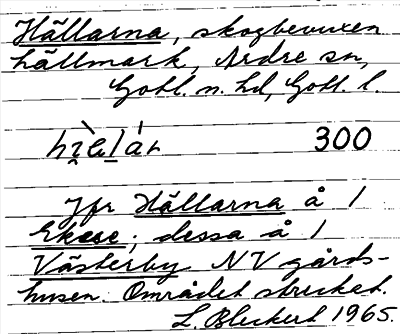 Hällarna, skogbevuxen
hällmark, Ardre sn,
Gotl. n. hd, Gotl. l.
300
Jfr Hällarna å 1
Ekese; dessa å 1
Västerby NV gårds-
husen. Området streckat.
L. Bleckert 1965.